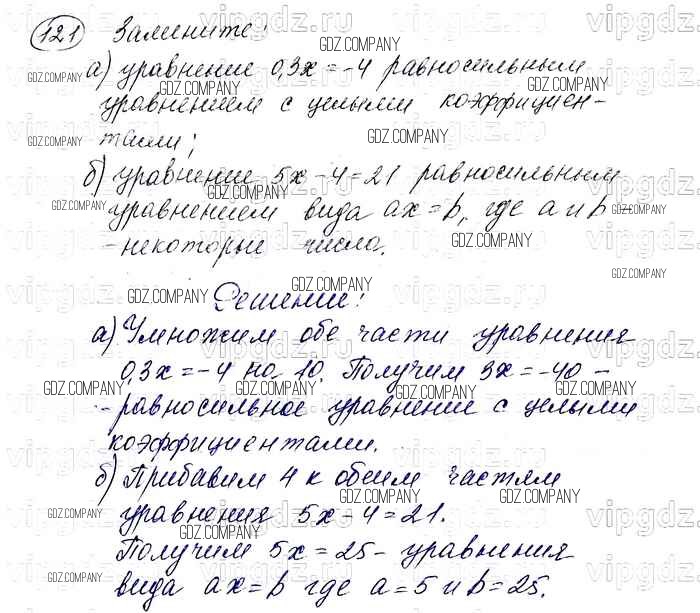 121 Замените:
а) уравнение 0,3x = -4 равносильным
уравнением с целыми коэффициен-
тами;
б) уравнение 5x - 4 = 21 равносильным
уравнением вида ax = b, где a и b -
- некоторые числа.
Решение:
а) Умножим обе части уравнения
0,3x = -4 на 10. Получим 3x = -40 -
- равносильное уравнение с целыми
коэффициентами.
б) Прибавим 4 к обеим частям
уравнения 5x - 4 = 21.
Получим 5x = 25 - уравнения
вида ax = b где a = 5 и b = 25.